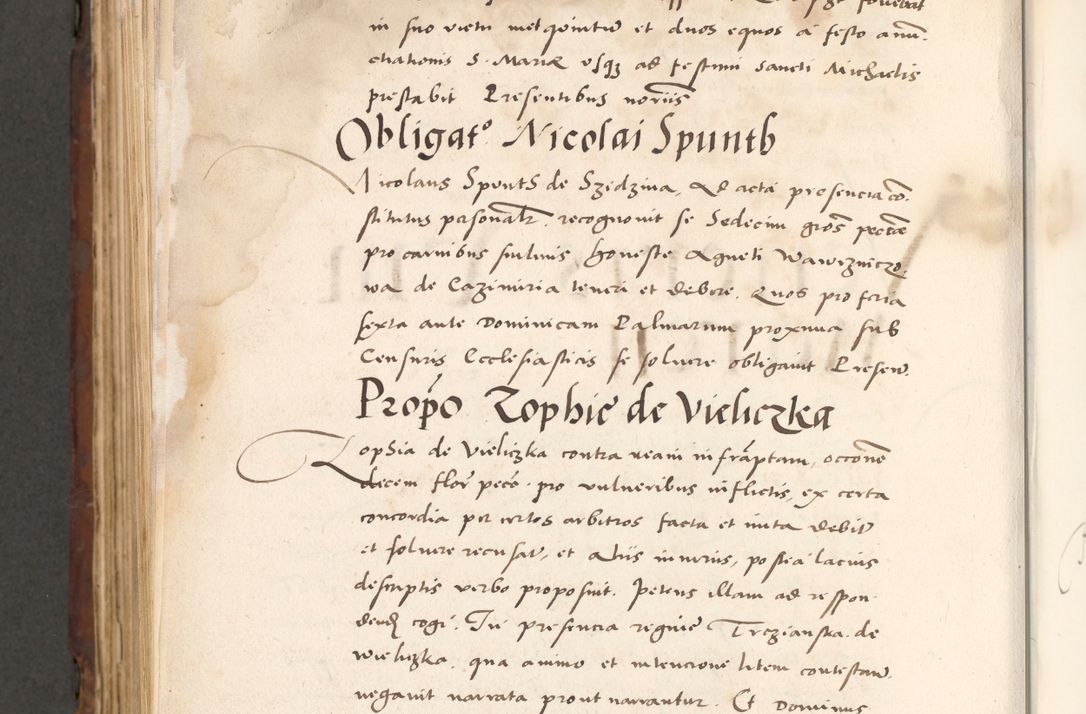 in suo victu metquinto et duos equos a festo anun-
ctiationis S. Mariæ usq3 ad festum Sancti Michaelis
prestabit Presentibus noriis
Obligat° Nicolai Spuntb
Nicolaus Spuntb de Szidzina, Ad acta presencia con-
stitutus personalr. recognovit se Sedecim gros pecciæ
pro carnibus suilinis honeste Agneti Wawrzniczo-
wa de Cazimiria teneri et debere. Quos pro feria
sexta ante Dominicam Palmarum proxima sub
Censuris Ecclesiasticis se soluere obligavit Presen.
Propo Zophie de Vieliczka
Zophia de Vieliczka contra ream infraptam, occone
decem flor pecce. pro vulneribus inflictis, ex certa
concordia per certos arbitros facta et inita debit
et soluere recusat, et Aliis iniuriis, postea lacius
descriptis verbo proposuit. Petens illam ad respon-
dend cogi. In presencia regine Trczianska de
Wieliczka, qua animo et intencione litem contestan.
negavit narrata prout narrantur. Et Dominus